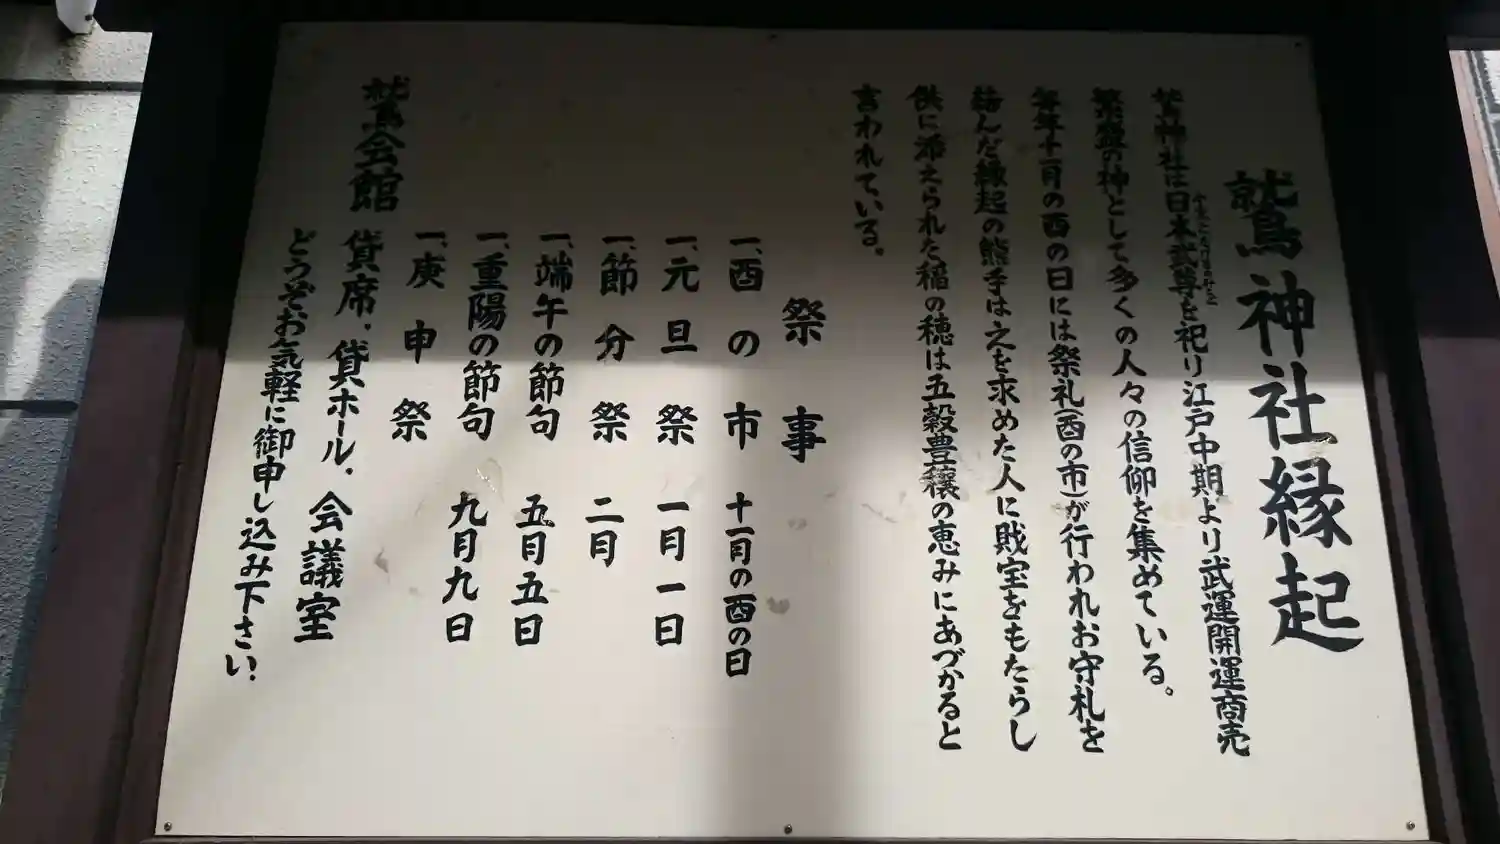 鷲神社縁起
鷲神社は日本武尊を祀り江戸中期より武運開運商売
繁盛の神として多くの人々の信仰を集めている。
毎年十一月の酉の日には祭礼(酉の市)が行われお守札を
結んだ縁起の熊手は之を求めた人に財宝をもたらし
供に添えられた稲の穂は五穀豊穣の恵みにあづかると
言われている。
祭事
一、酉の市 十一月の酉の日
一、元旦祭 一月一日
一、節分祭 二月
一、端午の節句 五月五日
一、重陽の節句 九月九日
一、庚申祭
鷲会館 貸席、貸ホール、会議室
どうぞお気軽に御申し込み下さい。